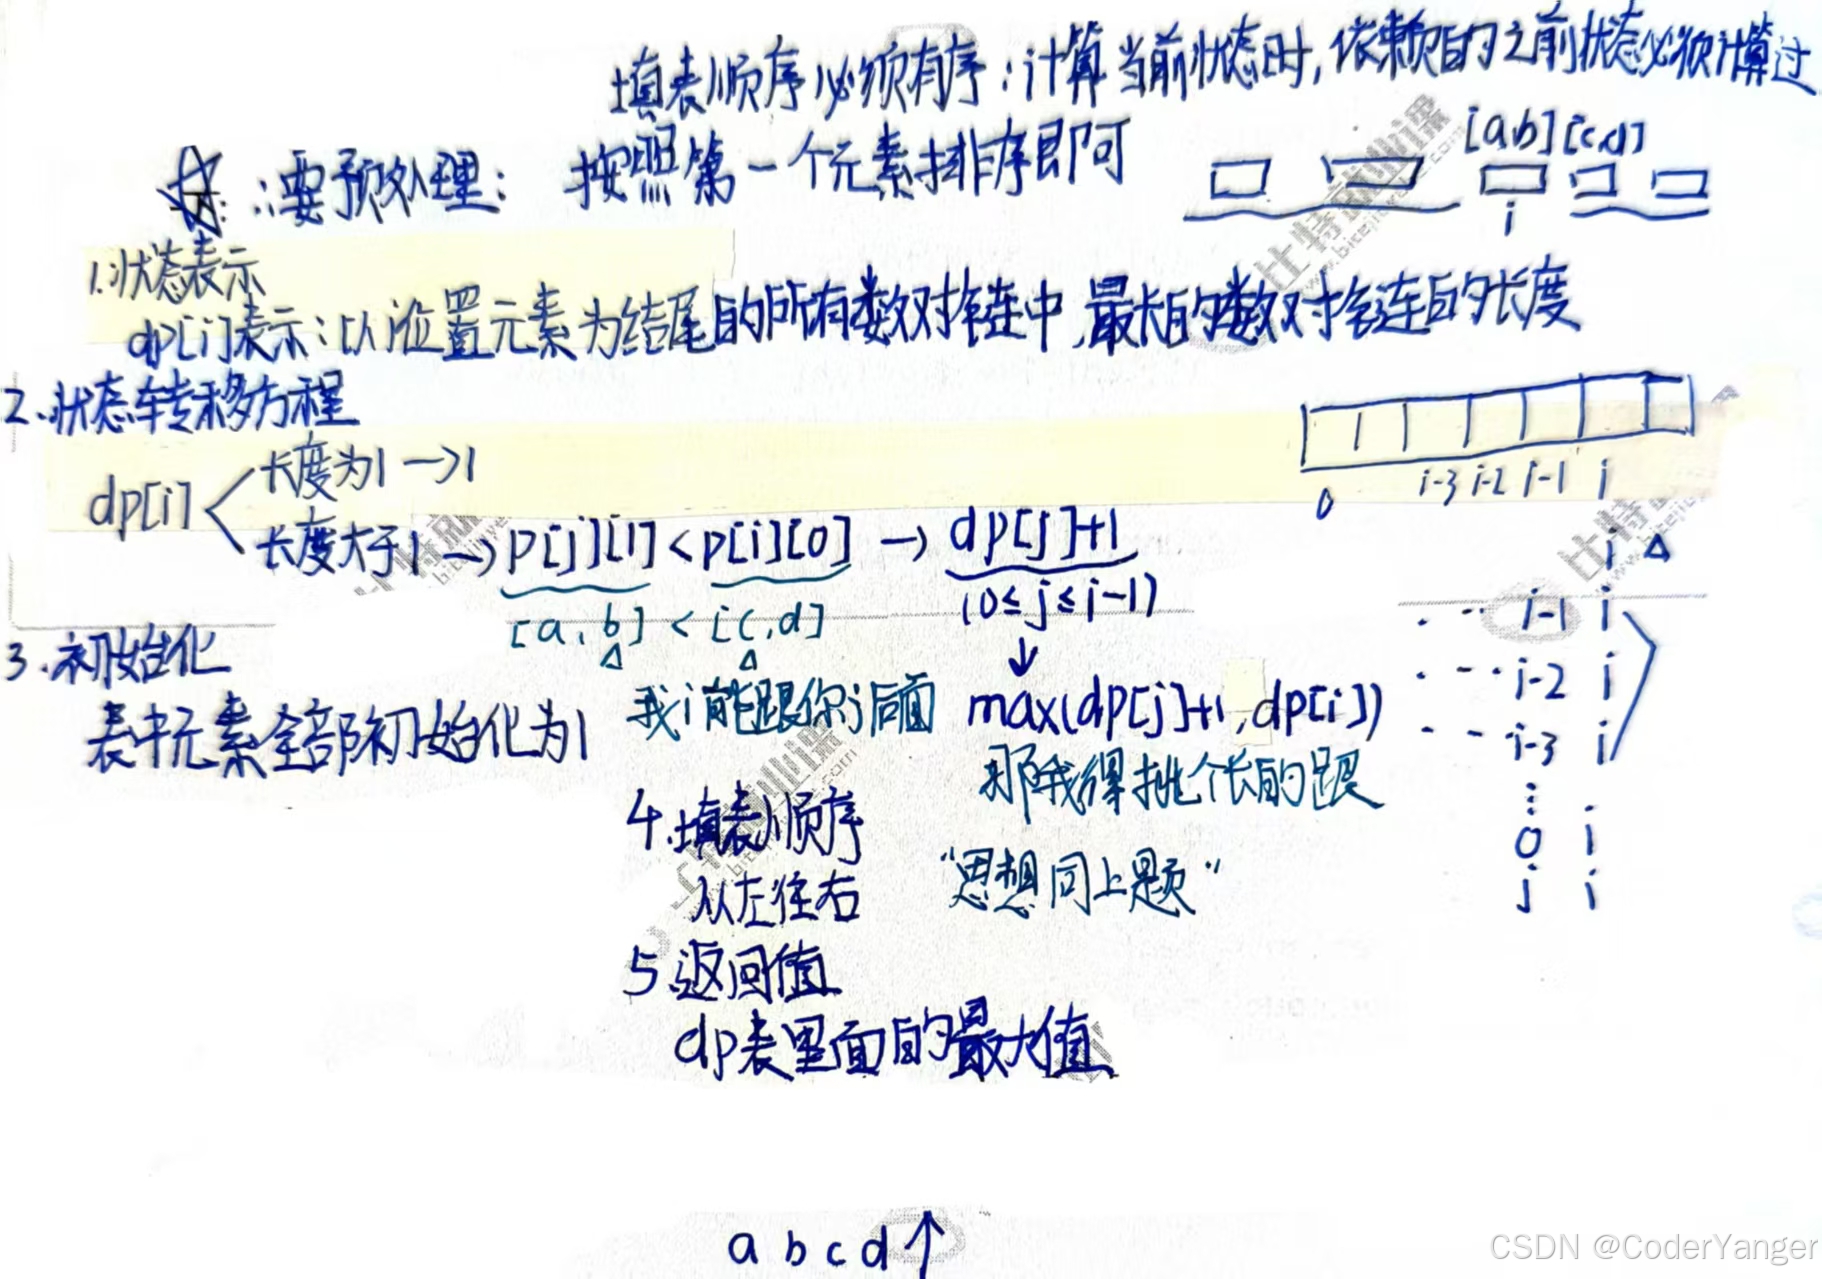 填表顺序必须有序：计算当前状态时，依赖的之前状态必须计算过
∴要预处理： 按照第一个元素排序即可
[a,b] [c,d]
i
1.状态表示
dp[i]表示：以i位置元素为结尾的所有数对链中,最长的数对链的长度
2.状态转移方程
dp[i]
长度为1→1
长度大于1→p[j][1]<p[i][0] → dp[j]+1
(0≤j≤i-1)
[a,b] < [c,d]
我i能跟你j后面
max(dp[j]+1,dp[i])
那我得挑个长的跟
0 i-3 i-2 i-1 i
i
i-1 i
i-2 i
i-3 i
0 i
j i
3.初始化
表中元素全部初始化为1
4.填表顺序
从左往右
"思想同上题"
5.返回值
dp表里面的最大值
a b c d↑
比特就业课
www.bitejiuyeke.com
CSDN @CoderYanger